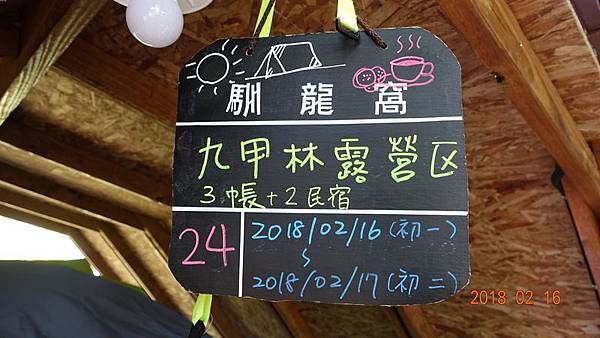 馴龍窩
九甲林露營区
3帳+2民宿
24
2018/02/16(初一)
~
2018/02/17(初二)
2018 02 16